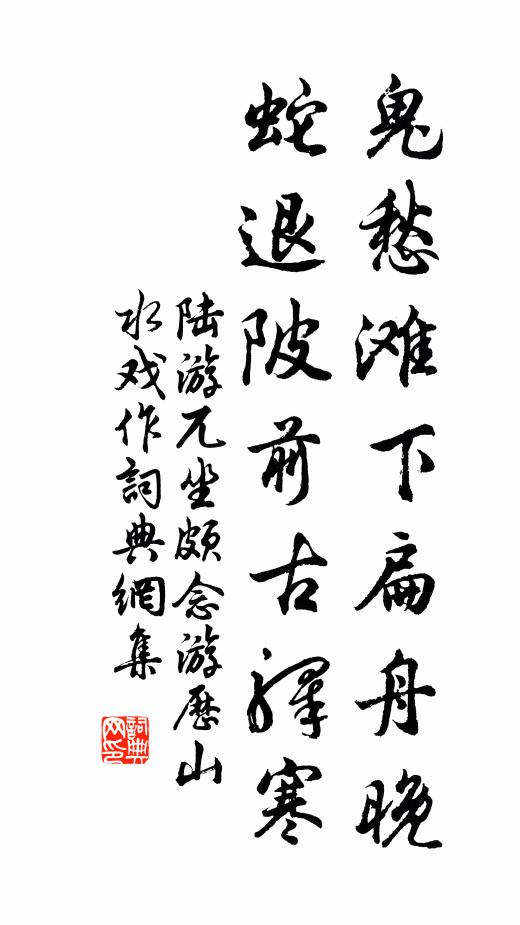 鬼愁滩下扁舟晚
蛇退陂前古驿寒
陆游兀坐颇念游历山
水戏作詞典網集
詞典网印